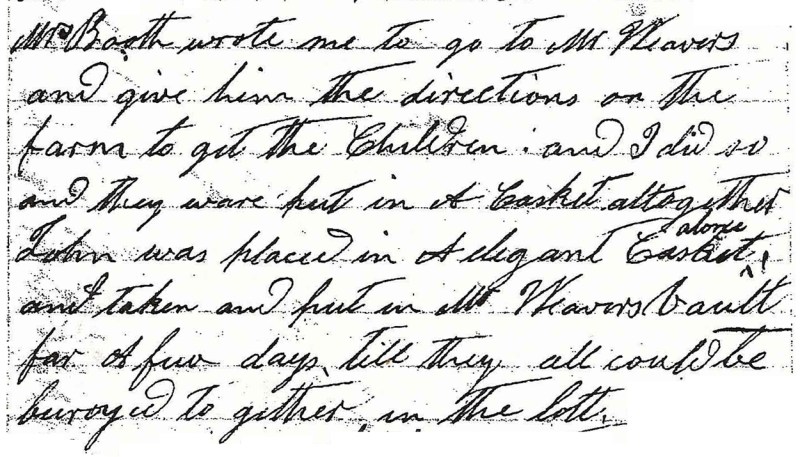 Mrs Booth wrote me to go to Mr Weavers
and give him the directions on the
farm to git the Children. and I did so
and they ware put in A Casket altogether
John was placed in A elegant Casket, alone
and taken and put in Mr Weavers Vault
for A few days, till they all could be
buryed to gether, in the lott.